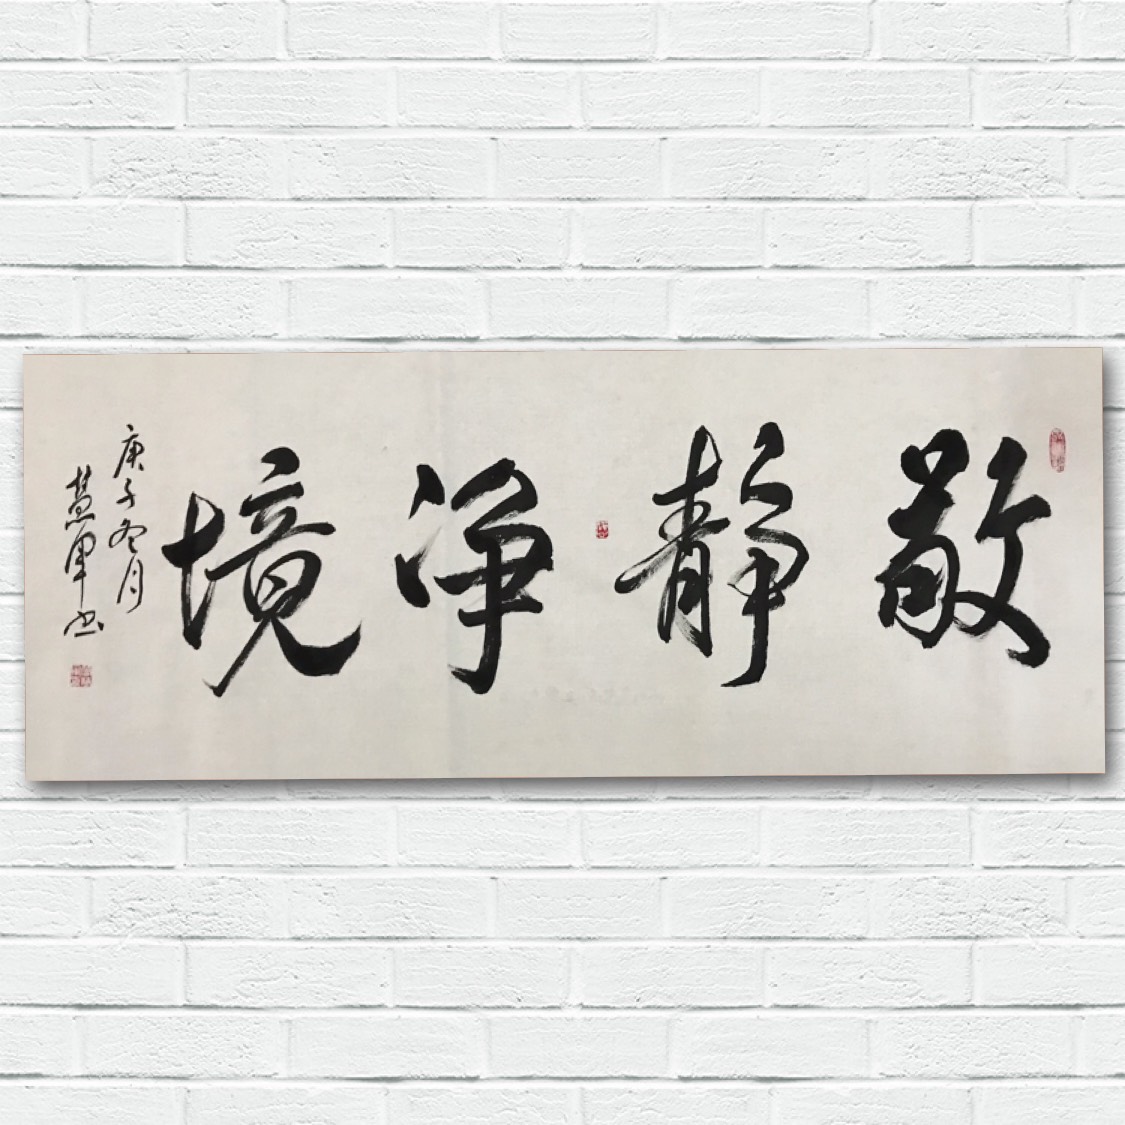 敬静净境
庚子冬月
慧军书